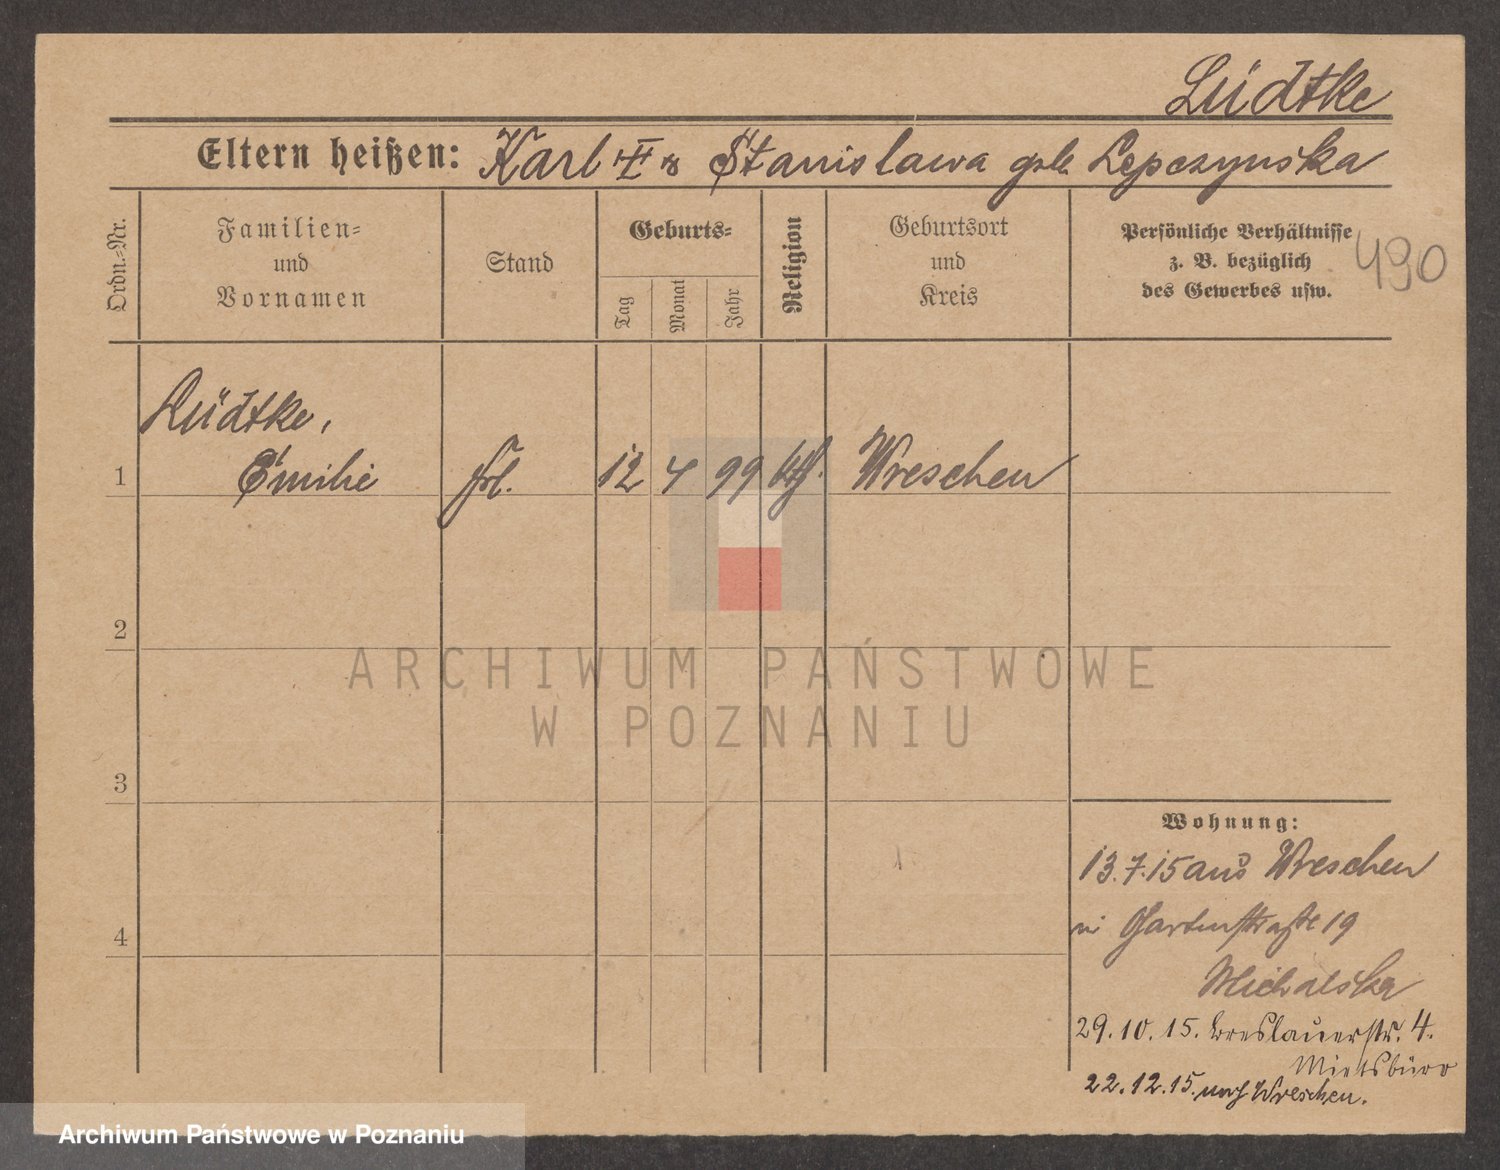 Lüdtke
Eltern heißen: Karl Stanislawa geb. Lepczynska
Ordn.-Nr.
Familien-
und
Vornamen
Stand
Geburts-
Tag
Monat
Jahr
Religion
Geburtsort
und
Kreis
Persönliche Verhältnisse
z. B. bezüglich
des Gewerbes usw.
490
Lüdtke,
1 Emilie frl. 12 4 99 kth. Wreschen
2
ARCHIWUM PAŃSTWOWE
W POZNANIU
3
Wohnung:
13.7.15 aus Wreschen
Gartenstraße 19
4
Michalska
29.10.15. Breslauerstr. 4.
Mietsbüro
22.12.15. nach Wreschen.
Archiwum Państwowe w Poznaniu